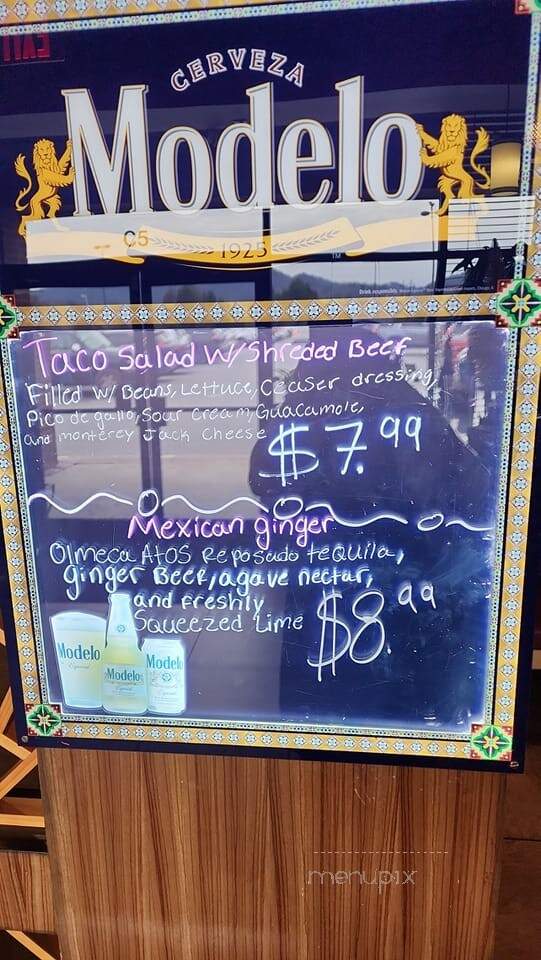 EXIT
CERVEZA
Modelo
C5 1925 TM
Drink responsibly.
Taco Salad W/Shreded Beef
Filled W/ Beans, Lettuce, Ceaser dressing,
Pico de gallo, Sour Cream, Guacamole,
and monterey Jack Cheese
$7.99
Mexican ginger
Olmeca Altos Reposado teQuila,
ginger Beer, agave nectar,
and Freshly
Squeezed Lime
$8.99
Modelo
Especial
Modelo
Especial
Modelo
Especial
menupix